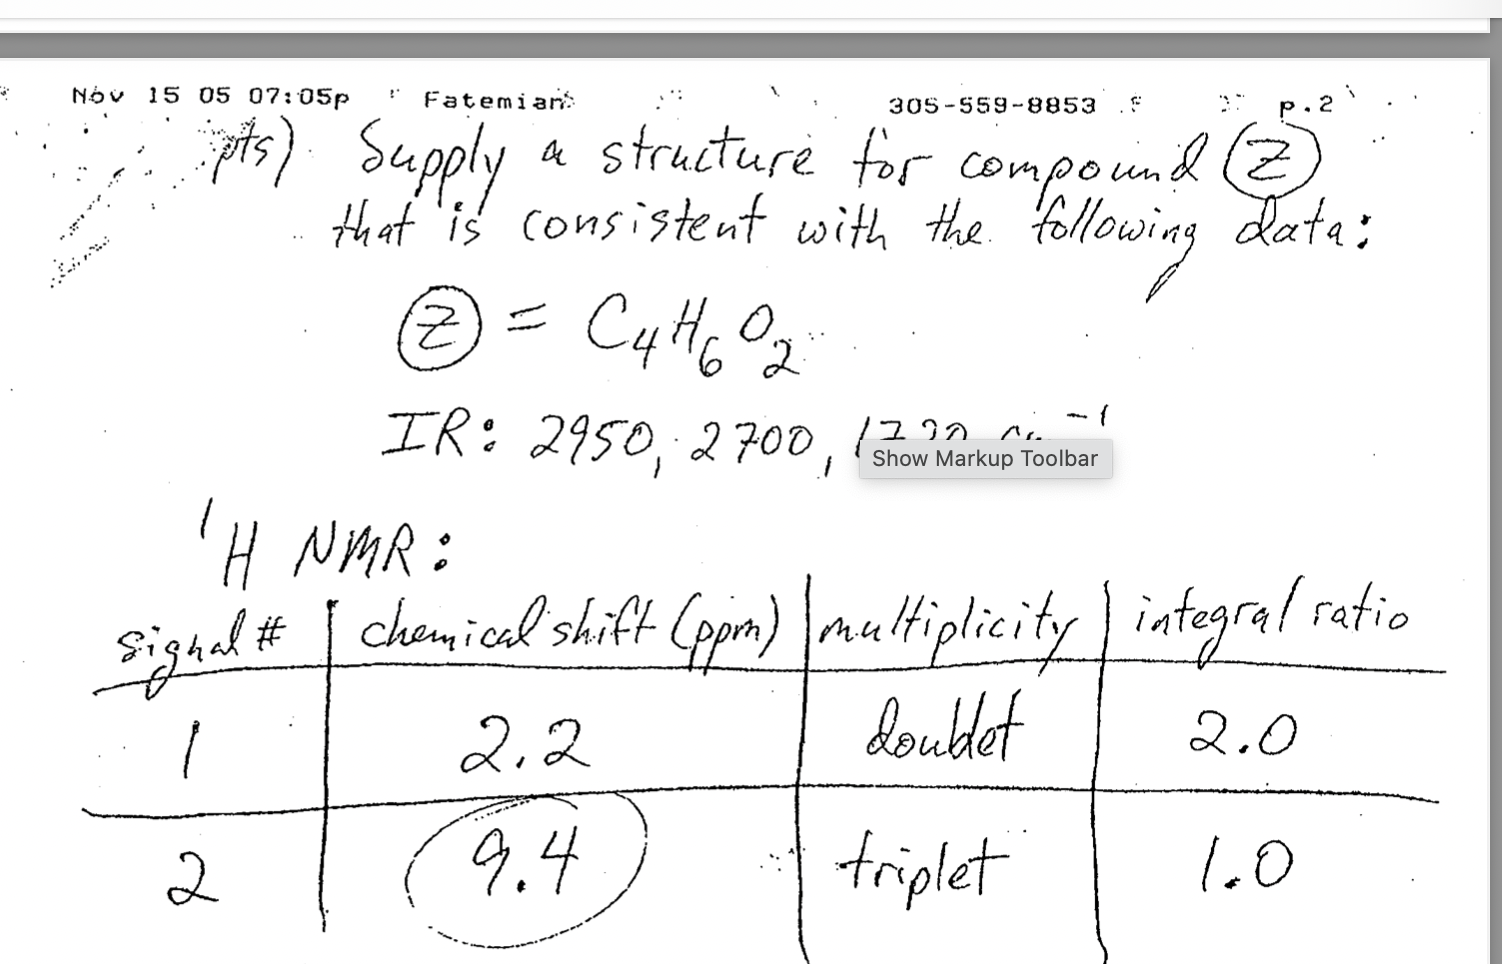 Nov 15 05 07:05p Fatemian 305-559-8853 p.2
pts) Supply a structure for compound Z
that is consistent with the following data:
Z = C4H6O2
IR: 2950, 2700,
Show Markup Toolbar
¹H NMR:
signal # chemical shift (ppm) multiplicity integral ratio
1 2.2 doublet 2.0
2 9.4 triplet 1.0